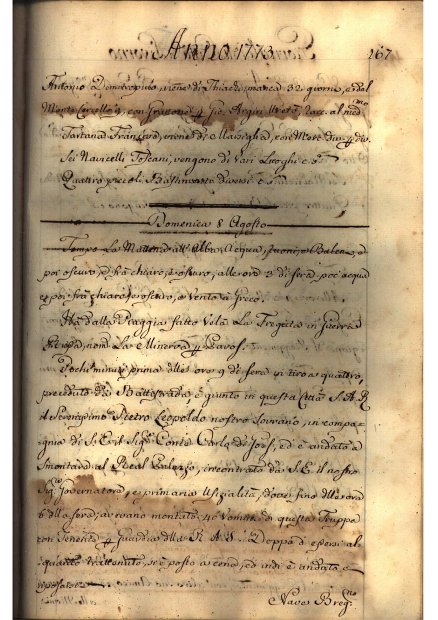 Anno 1773
267
Antonio Demetropulo, viene di Thiachi, manca 32. giorni, e dal
Monte Cercello 4, con Gio: Argiri
Tartana Francese, viene di Marsiglia, con Merc. div. 4 div.
Sei Navicelli Toscani, vengono di Vari Luoghi e
Quattro piccoli Bastimenti diversi e
Domenica 8 Agosto
Tempo La Mattina all'Alba Acqua, tuoni, e Baleni, e
poi oscuro, e frà chiaro, e oscuro, alle ore 3 di sera poc'acqua
e poi frà chiaro, e oscuro, e Vento a Greco.
Hà dalla Piaggia fatto Vela La Fregata in guerra
nom. La Minerva 4
Pochi minuti prima delle ore 9 di sera in tiro a quattro,
preceduto da Battistrada è giunto in questa Città S. A. R.
il Serenissimo Pietro Leopoldo nostro Sovrano, in compa=
gnia di S. Ecc. Sig. Conte Carlo di ed è andato a
smontare al Real Palazzo, incontrato da S. E. il nostro
Sig. Governatore, e primaria Ufizialità, fino dalle ore
6 della sera, avevano montato 40 Uomini di questa Truppa
con Tenente 4 Guardia della R. A. S. Doppo d'essersi al=
quanto trattenuto, si è posto a cena, ed indi è andato a
riposare
Nave Breg.